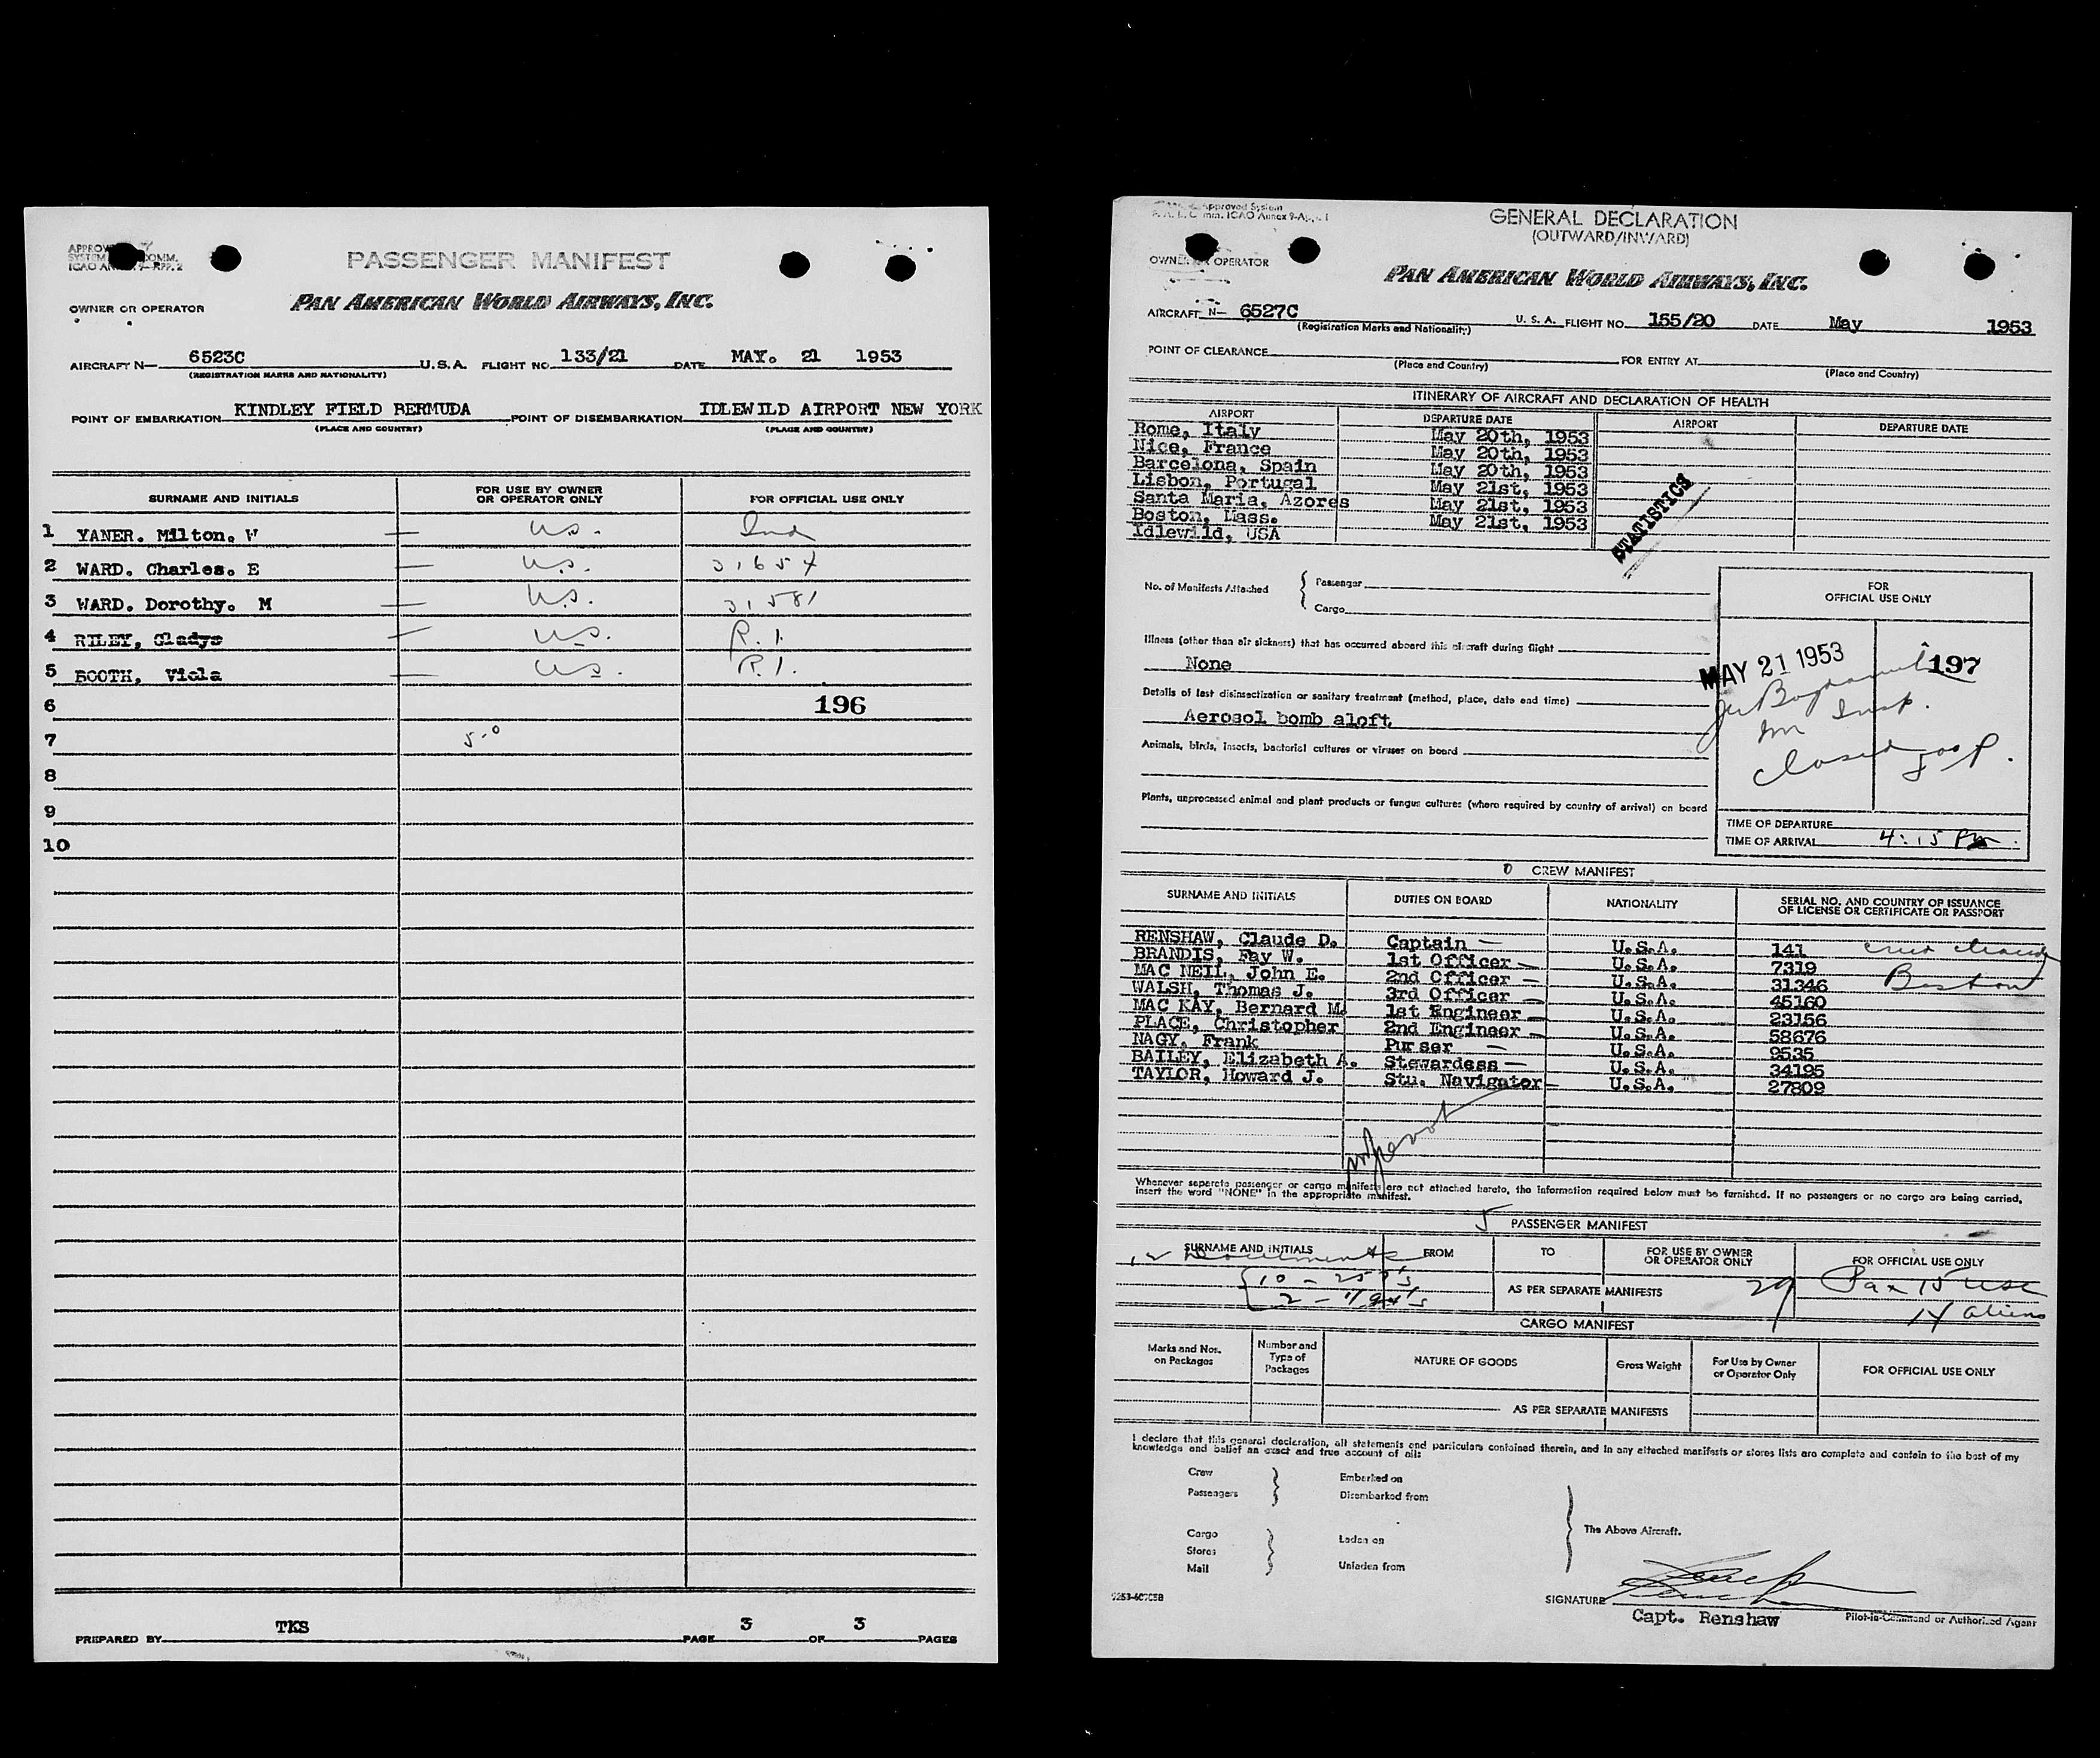 PASSENGER MANIFEST
OWNER OR OPERATOR
PAN AMERICAN WORLD AIRWAYS, INC.
AIRCRAFT N— 6523C U.S.A. FLIGHT NO. 133/21 DATE MAY. 21 1953
(REGISTRATION MARKS AND NATIONALITY)
POINT OF EMBARKATION KINDLEY FIELD BERMUDA POINT OF DISEMBARKATION IDLEWILD AIRPORT NEW YORK
(PLACE AND COUNTRY) (PLACE AND COUNTRY)
SURNAME AND INITIALS FOR USE BY OWNER OR OPERATOR ONLY FOR OFFICIAL USE ONLY
1 YANER. Milton. W — U.S. Ind
2 WARD. Charles. E — U.S. 31654
3 WARD. Dorothy. M — U.S. 31581
4 RILEY, Gladys — U.S. R.I.
5 BOOTH, Viola — U.S. R.I.
6 196
7 5-0
8
9
10
PREPARED BY TKS PAGE 3 OF 3 PAGES
GENERAL DECLARATION
(OUTWARD/INWARD)
OWNER OR OPERATOR
PAN AMERICAN WORLD AIRWAYS, INC.
AIRCRAFT N— 6527C U. S. A. FLIGHT NO. 155/20 DATE May 1953
(Registration Marks and Nationality)
POINT OF CLEARANCE FOR ENTRY AT
(Place and Country) (Place and Country)
ITINERARY OF AIRCRAFT AND DECLARATION OF HEALTH
AIRPORT DEPARTURE DATE AIRPORT DEPARTURE DATE
Rome, Italy May 20th, 1953
Nice, France May 20th, 1953
Barcelona, Spain May 20th, 1953
Lisbon, Portugal May 21st, 1953
Santa Maria, Azores May 21st, 1953
Boston, Mass. May 21st, 1953
Idlewild, USA
STATISTICS
No. of Manifests Attached { Passenger
Cargo
FOR
OFFICIAL USE ONLY
Illness (other than air sickness) that has occurred aboard this aircraft during flight
None
MAY 21 1953 197
Details of last disinsectization or sanitary treatment (method, place, date and time)
Aerosol bomb aloft
Im Insp.
Closed 500 P.
Animals, birds, insects, bacterial cultures or viruses on board
Plants, unprocessed animal and plant products or fungus cultures (where required by country of arrival) on board
TIME OF DEPARTURE
TIME OF ARRIVAL 4:15 PM.
0 CREW MANIFEST
SURNAME AND INITIALS DUTIES ON BOARD NATIONALITY SERIAL NO. AND COUNTRY OF ISSUANCE OF LICENSE OR CERTIFICATE OR PASSPORT
RENSHAW, Claude D. Captain — U.S.A. 141 crew change
BRANDIS, Fay W. 1st Officer — U.S.A. 7319
MAC NEIL, John E. 2nd Officer — U.S.A. 31346 Boston
WALSH, Thomas J. 3rd Officer — U.S.A. 45160
MAC KAY, Bernard M. 1st Engineer — U.S.A. 23156
PLACE, Christopher 2nd Engineer — U.S.A. 58676
NAGY, Frank Purser — U.S.A. 9535
BAILEY, Elizabeth A. Stewardess — U.S.A. 34195
TAYLOR, Howard J. Stu. Navigator — U.S.A. 27809
Whenever separate passenger or cargo manifests are not attached hereto, the information required below must be furnished. If no passengers or no cargo are being carried,
insert the word "NONE" in the appropriate manifest.
5 PASSENGER MANIFEST
SURNAME AND INITIALS FROM TO FOR USE BY OWNER OR OPERATOR ONLY FOR OFFICIAL USE ONLY
12 Documents
AS PER SEPARATE MANIFESTS 29 Pax 15 USC
14 aliens
CARGO MANIFEST
Marks and Nos. on Packages Number and Type of Packages NATURE OF GOODS Gross Weight For Use by Owner or Operator Only FOR OFFICIAL USE ONLY
AS PER SEPARATE MANIFESTS
I declare that this general declaration, all statements and particulars contained therein, and in any attached manifests or stores lists are complete and contain to the best of my
knowledge and belief an exact and true account of all:
Crew Embarked on
Passengers Disembarked from
The Above Aircraft.
Cargo Laden on
Stores
Mail Unladen from
SIGNATURE
Capt. Renshaw Pilot-in-Command or Authorized Agent